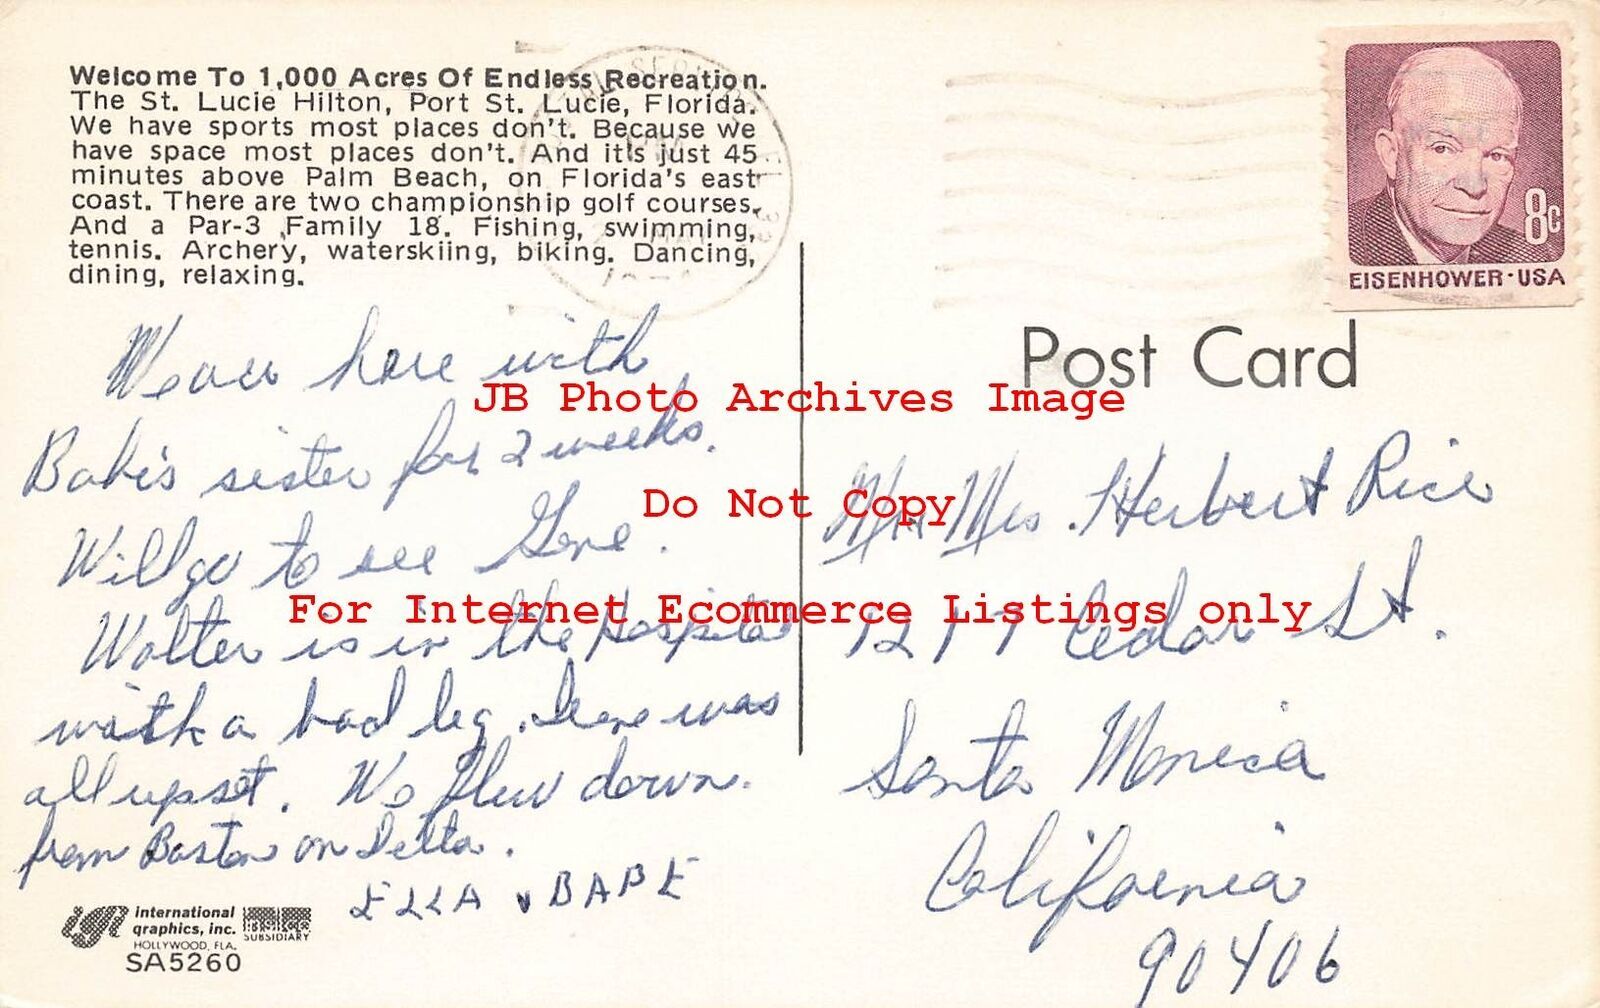 Welcome To 1,000 Acres Of Endless Recreation.
The St. Lucie Hilton, Port St. Lucie, Florida.
We have sports most places don't. Because we
have space most places don't. And it's just 45
minutes above Palm Beach, on Florida's east
coast. There are two championship golf courses.
And a Par-3 Family 18. Fishing, swimming,
tennis. Archery, waterskiing, biking. Dancing,
dining, relaxing.
We are here with
sister for 2 weeks.
Will go to see Gene.
Walter is in the Hospital
with a bad leg. Gene was
all upset. We flew down
from Boston on Delta.
ELLA & BABE
international
graphics, inc.
HOLLYWOOD, FLA.
SUBSIDIARY
SA5260
8c
EISENHOWER·USA
Post Card
JB Photo Archives Image
Do Not Copy
For Internet Ecommerce Listings only
Mr Mrs. Herbert Rice
1217 Cedar St.
Santa Monica
California
90406